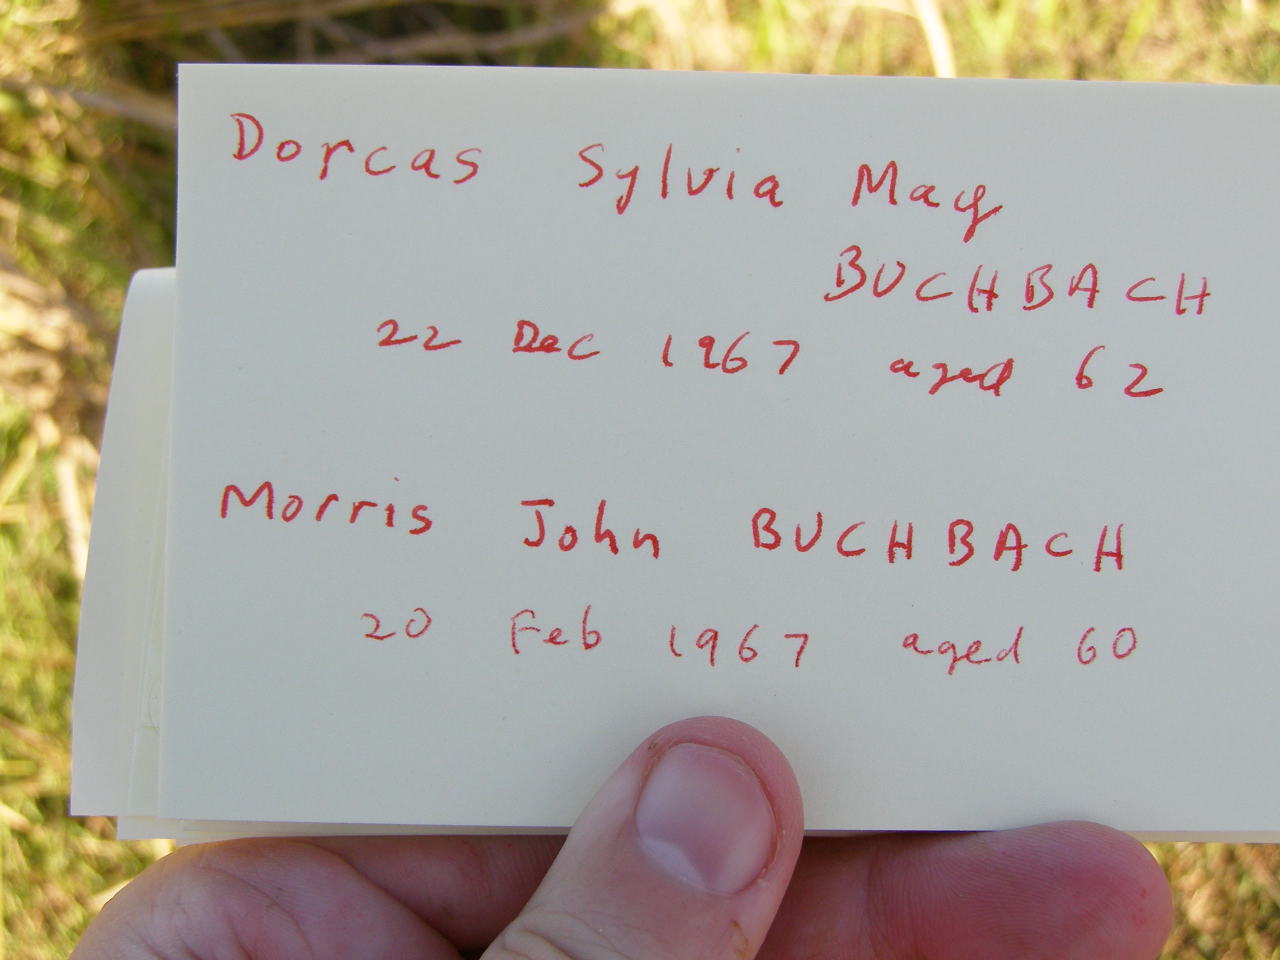 Dorcas Sylvia May
BUCHBACH
22 Dec 1967 aged 62
Morris John BUCHBACH
20 Feb 1967 aged 60